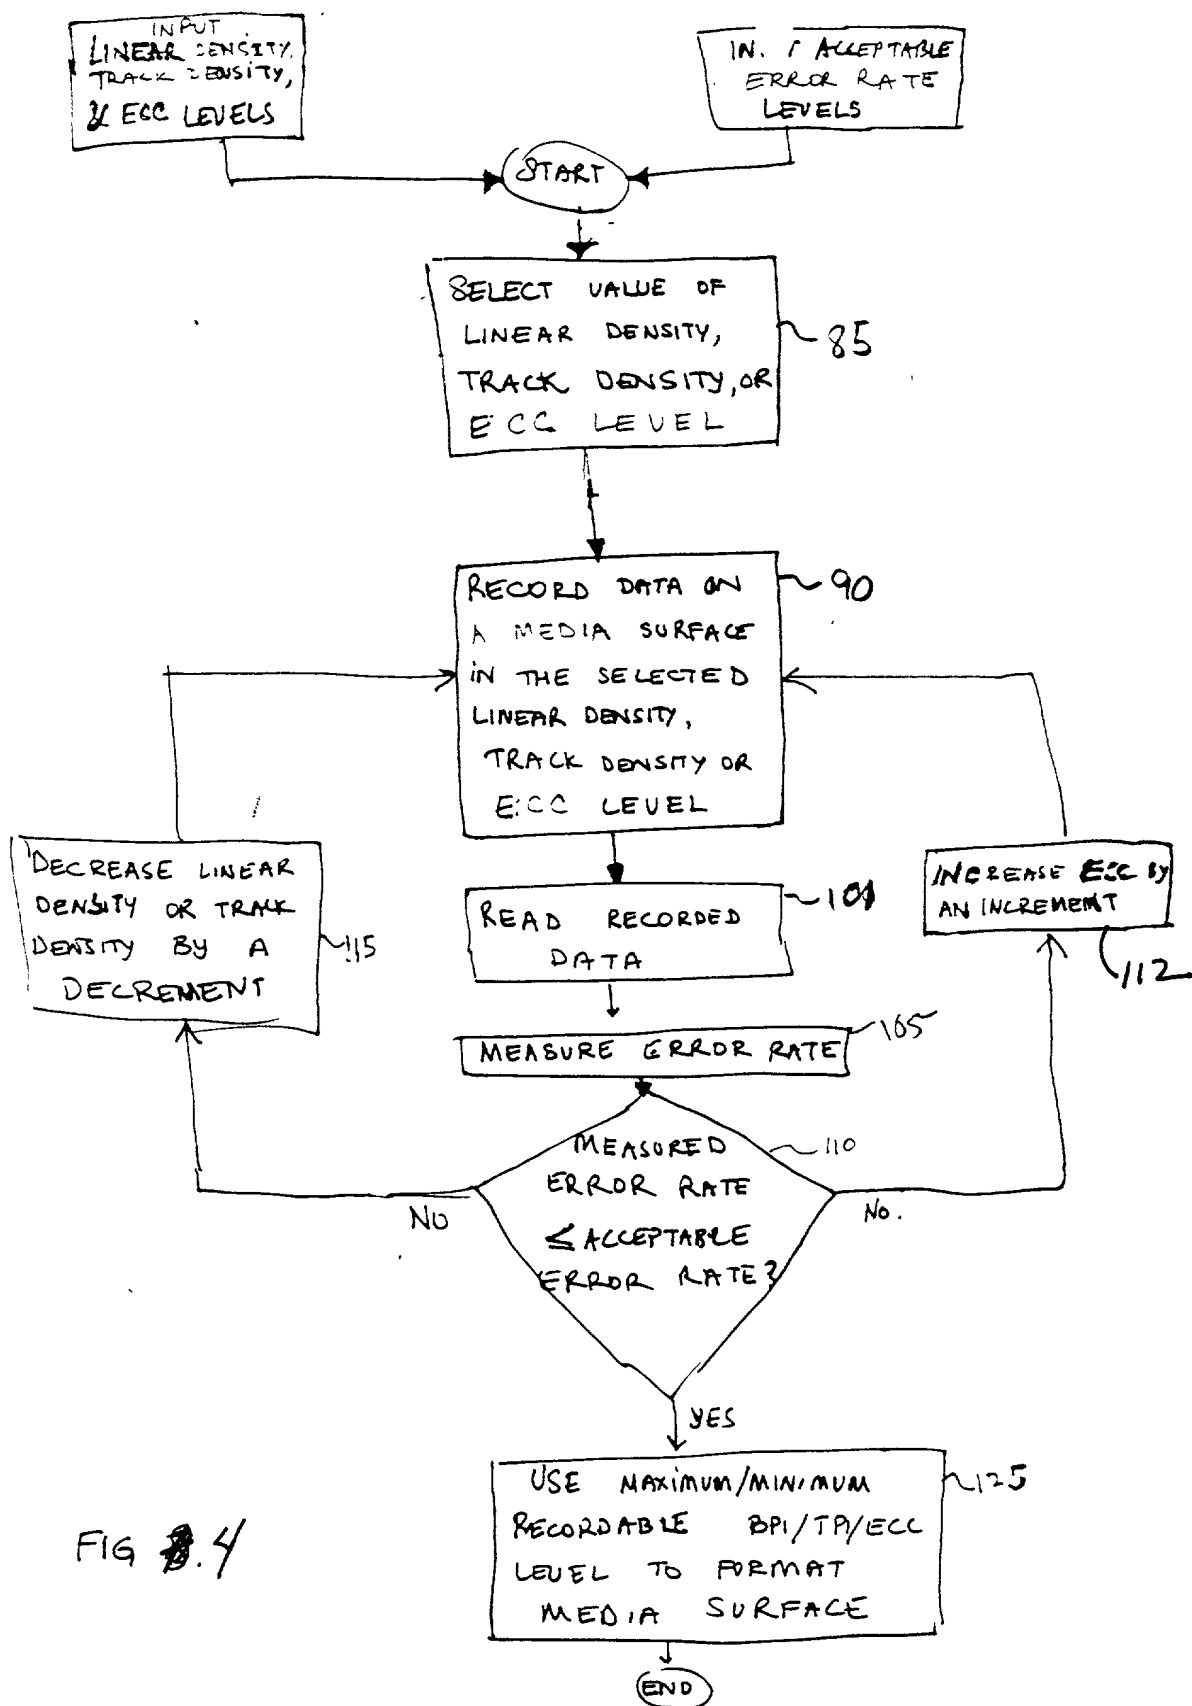 INPUT
LINEAR DENSITY,
TRACK DENSITY,
& ECC LEVELS
ACCEPTABLE
ERROR RATE
LEVELS
START
SELECT VALUE OF
LINEAR DENSITY,
TRACK DENSITY, OR
ECC LEVEL
85
RECORD DATA ON
A MEDIA SURFACE
IN THE SELECTED
LINEAR DENSITY,
TRACK DENSITY OR
ECC LEVEL
90
DECREASE LINEAR
DENSITY OR TRACK
DENSITY BY A
DECREMENT
115
INCREASE ECC BY
AN INCREMENT
112
READ RECORDED
DATA
101
MEASURE ERROR RATE
105
MEASURED
ERROR RATE
≤ ACCEPTABLE
ERROR RATE?
110
NO
No.
YES
USE MAXIMUM/MINIMUM
RECORDABLE BPI/TPI/ECC
LEVEL TO FORMAT
MEDIA SURFACE
125
END
FIG .4